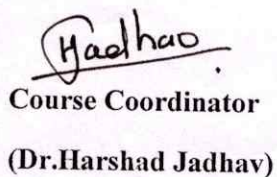 Hadhao
Course Coordinator
(Dr.Harshad Jadhav)